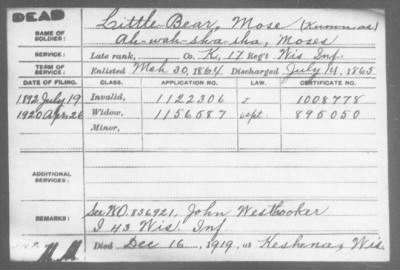 DEAD
NAME OF SOLDIER: Little-Bear, Mose (Known as)
Ah-wah-sha-sha, Moses
SERVICE: Late rank, Co. K, 17 Reg't Wis Inf.
TERM OF SERVICE: Enlisted Mch 30, 1864 Discharged July 14, 1865
DATE OF FILING. CLASS. APPLICATION NO. LAW. CERTIFICATE NO.
1892 July 19 Invalid, 1122306 1008778
1920 Apr. 26 Widow, 1156587 895050
Minor,
ADDITIONAL SERVICES:
REMARKS: See WO. 836921, John Westbooker
I 43 Wis. Inf
Died Dec 16, 1919, at Keshena, Wis.